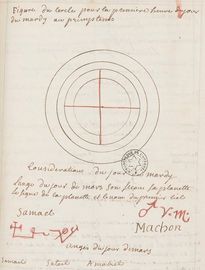 Figure du cercle pour la premiere heure du jour
du mardy au printemps
Considerations du jour de mardy
Lange du jour de mars son sceau sa planette
le signe de la planette et le nom du premier ciel
Samael
Machon
anges du jour de mars
Samael Satael Amabiel